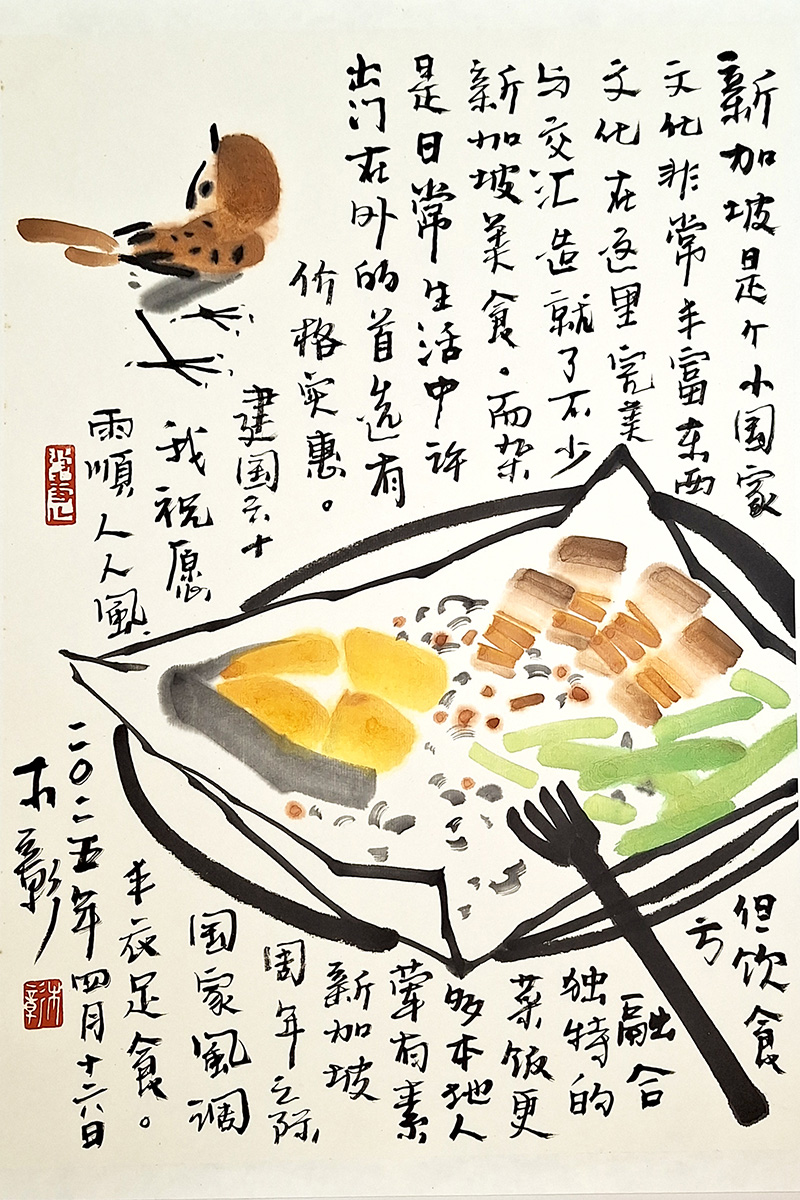 新加坡是个小国家
但饮食
文化非常丰富东西
方
文化在这里完美
融合
与交汇造就了不少
独特的
新加坡美食。而杂
菜饭更
是日常生活中许
多本地人
出门在外的首选有
荤有素
价格实惠。
新加坡
建国六十
周年之际
我祝愿
国家風调
雨順人人風
丰衣足食。
二〇二五年四月十六日